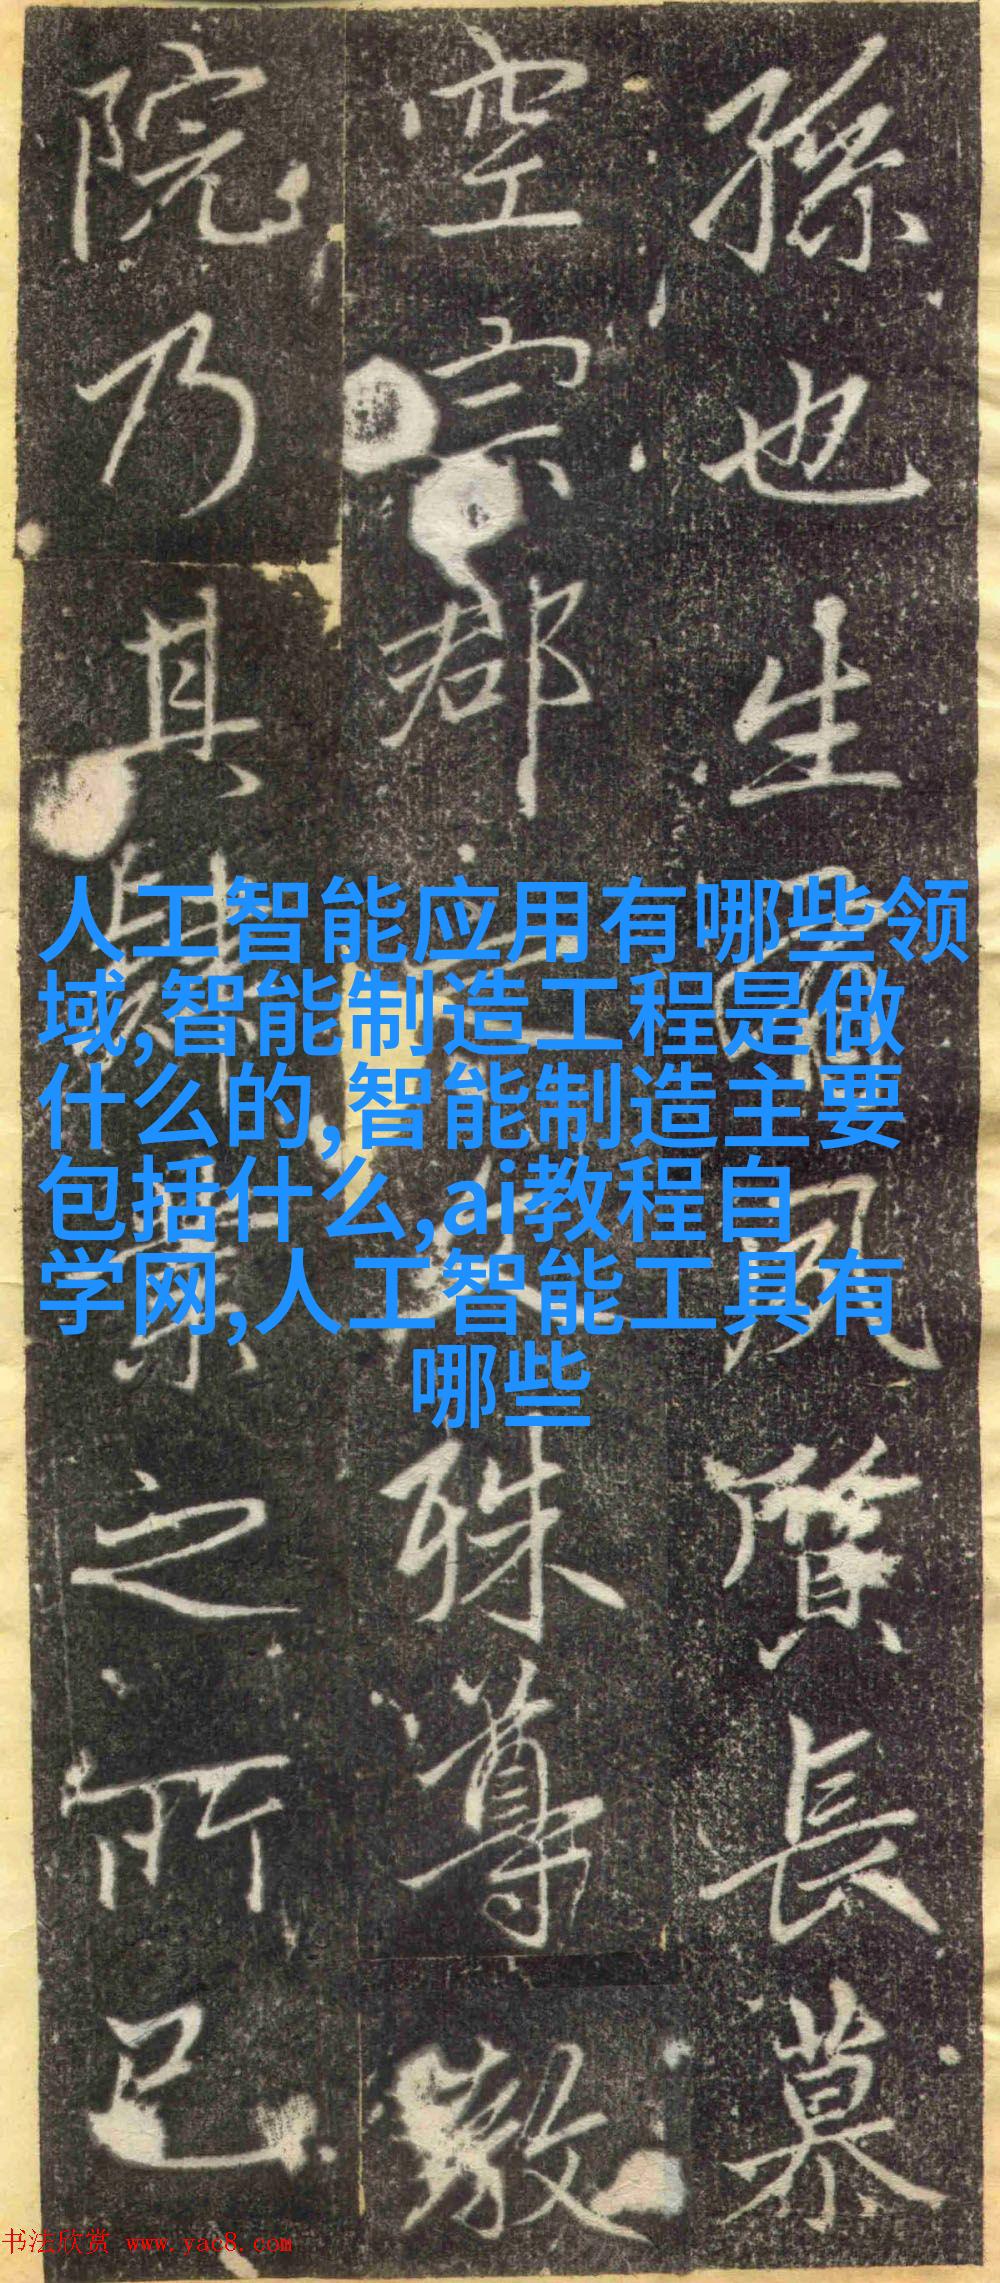 孫也生風長慕
空宗郡殊尊敬
院乃其肄業之所已
人工智能应用有哪些领
域,智能制造工程是做
什么的,智能制造主要
包括什么,ai教程自
学网,人工智能工具有
哪些
书法欣赏 www.yac8.com